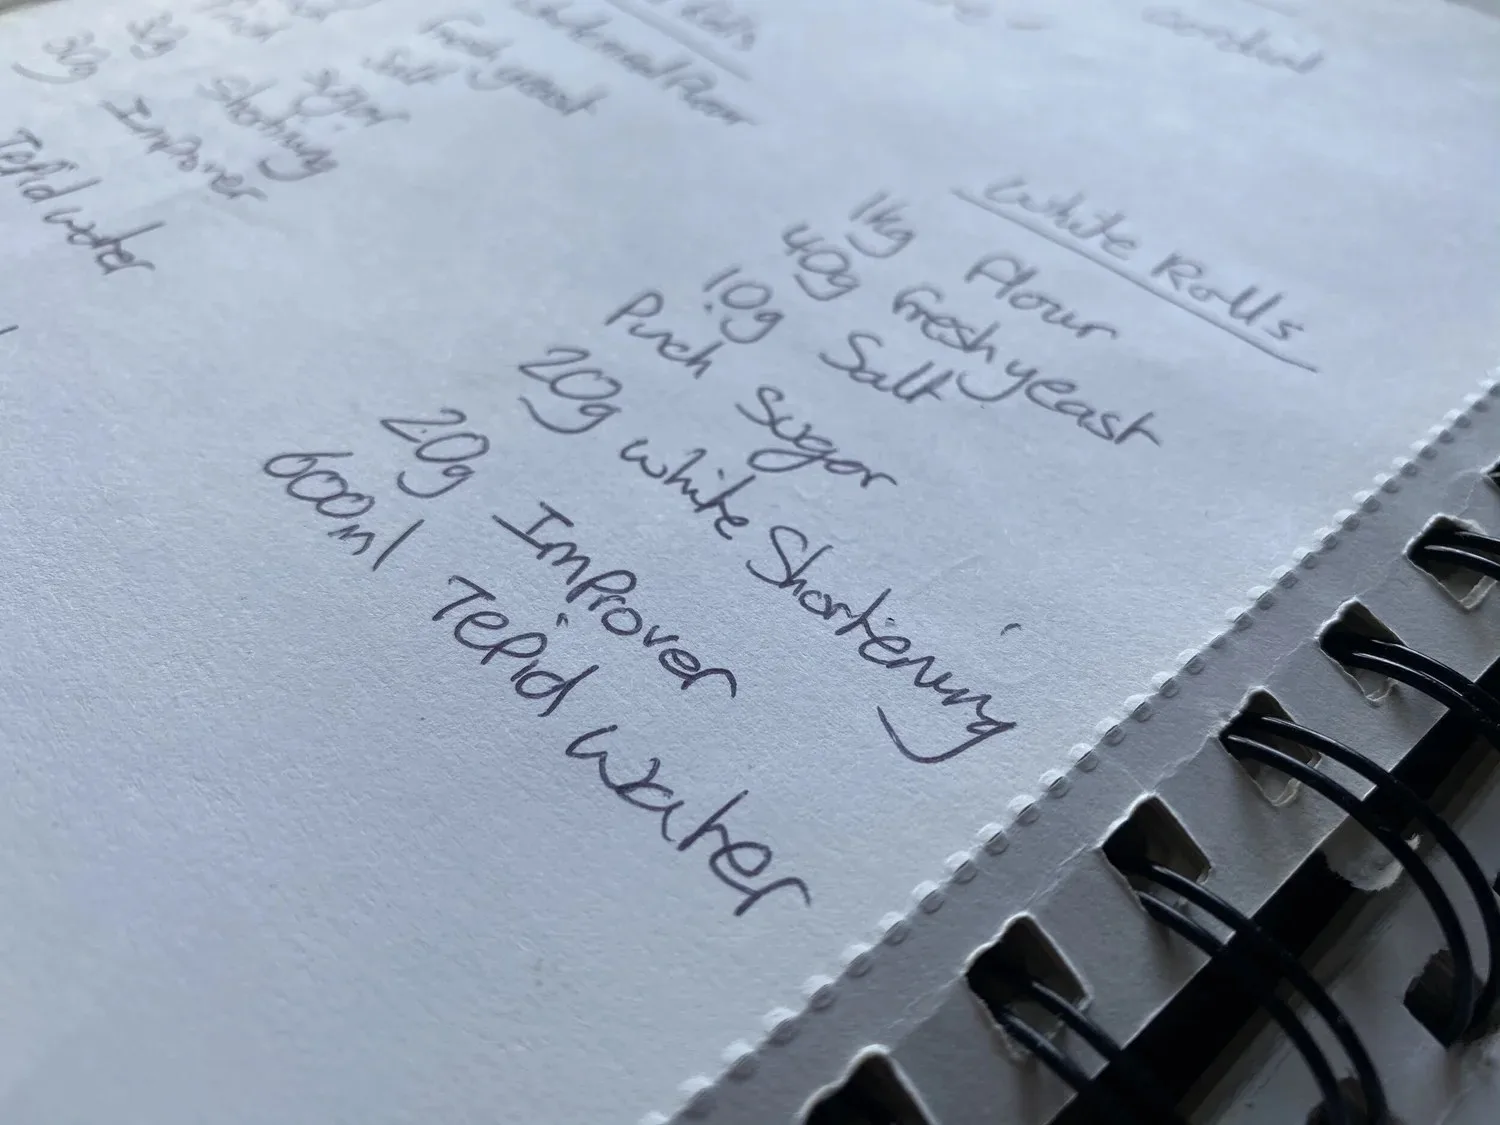 White Rolls
1kg Flour
40g fresh yeast
10g Salt
Pinch Sugar
20g white Shortening
20g Improver
600ml Tepid water
Wholemeal Flour
Fresh yeast
Salt
Sugar
Shortening
30g Improver
Tepid water